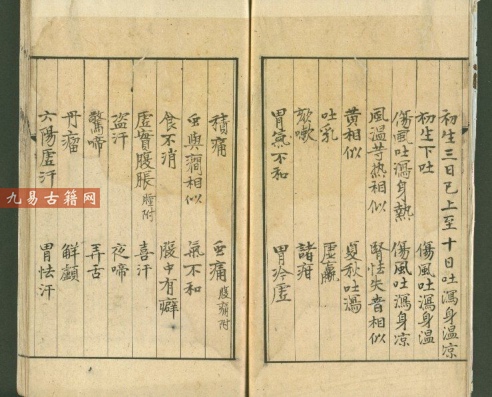 初生三日已上至十日吐瀉身温凉
初生下吐 傷風吐瀉身温
傷風吐瀉身熱 傷風吐瀉身凉
風温等熱相似 腎怯失音相似
黄相似 夏秋吐瀉
吐乳 虛羸
欬嗽 諸疳
胃氣不和 胃冷虛
積痛 虫痛腹痛附
虫與癇相似 氣不和
食不消 腹中有癖
虛實腹脹腫附 喜汗
盜汗 夜啼
驚啼 弄舌
丹瘤 解顱
六陽虛汗 胃怯汗
九易古籍网